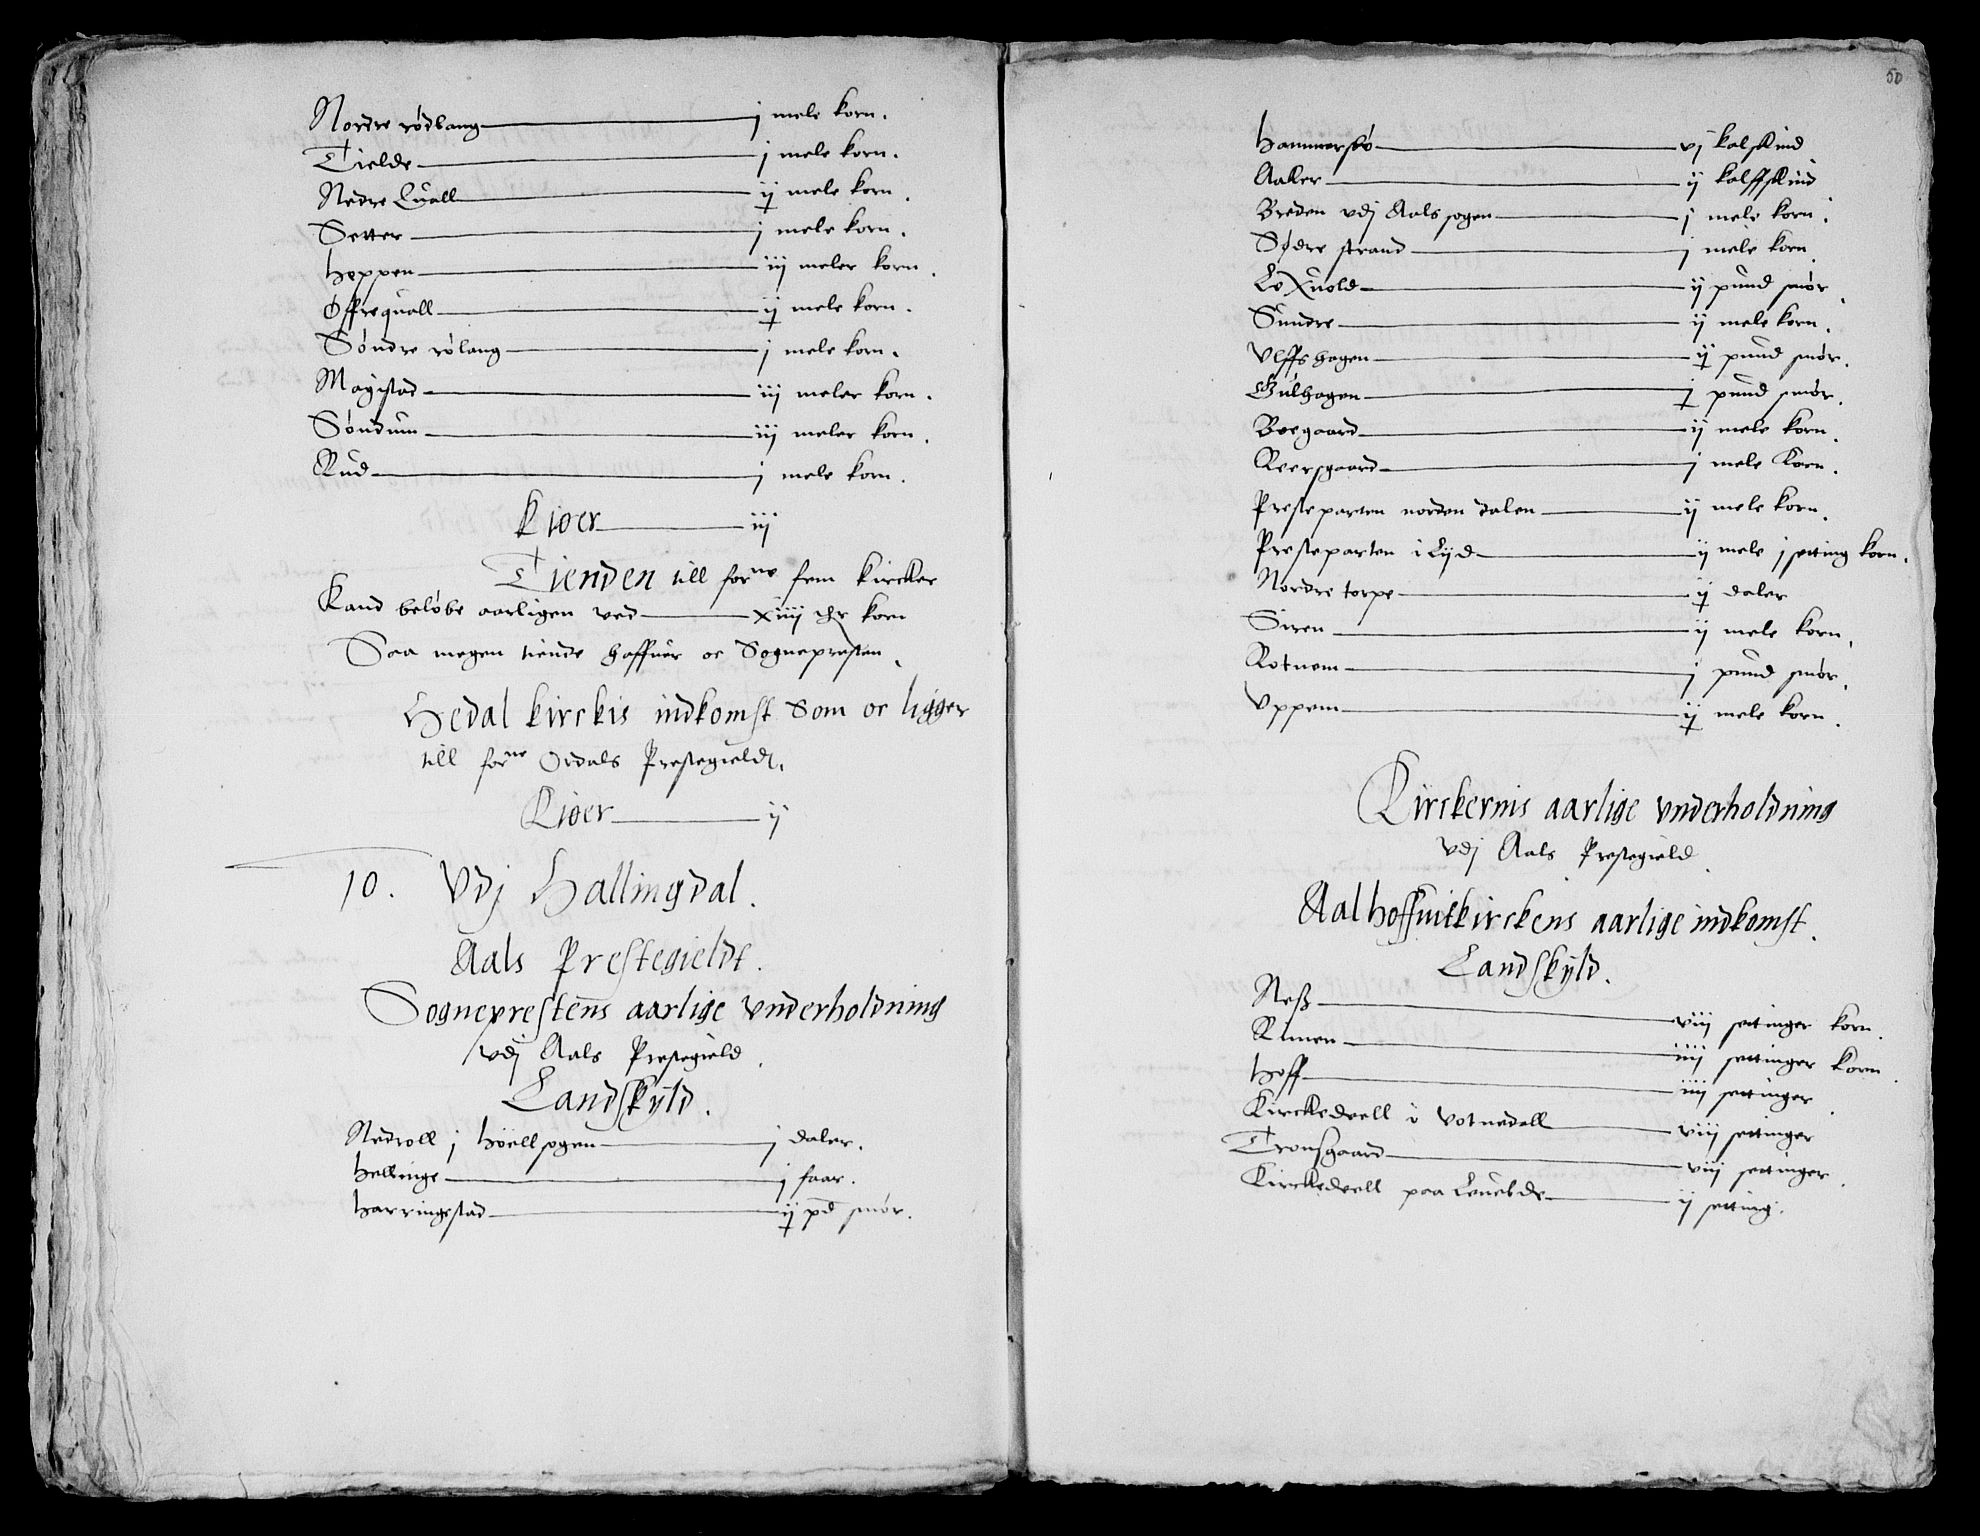 Nordre rødlang j mele korn.
Tielde j mele korn.
Nedre Quall ij mele korn.
Setter j mele korn.
Heppen iij meler korn.
Øffrequall ij mele korn.
Søndre rólang j mele korn.
Magistad iij meler korn.
Søndum iij meler korn.
Rud j mele korn.
Kiøer iij
Tienden till forne fem kircker
Kand beløbe aarligen ved xiiij korn
Saa megen tiende haffuer oc Sognepresten.
Hedal kirckis indkomst som oc ligger
till forne Ordals Prestegieldt.
Kiøer ij
10. Vdj Hallingdal.
Aals Prestegieldt.
Sogneprestens aarlige vnderholdning
vdj Aals Prestegield.
Landskyld.
Nedroll j Høellsogen j daler.
Hellinge j faar.
Harringestad ij pd smør.
50
Hammersbó vj kalskind
Aaker ij kalffskind
Breden vdj Aals sogen j mele korn.
Sødre strand j mele korn
ij pund smør.
Sundre ij mele korn.
Vlffshagen ij pund smør.
Gulhagen j pund smør.
Boegaard ij mele korn.
Reersgaard j mele Korn.
Presteparten norden dalen ij mele korn.
Presteparten i Lijd ij mele j setting korn.
Nordre torpe ij daler
Siren ij mele korn.
Rotnem j pund smør.
Vppem ij mele korn.
Kirckernis aarlige vnderholdning
vdj Aals Prestegield
Aal hoffuitkirckens aarlige indkomst.
Landskyld.
Neß viij settinger korn.
Rimen iiij settinger korn
Hoff iiij settinger
Kirckedeell i Votnedall viij settinger
Tronsgaard viij settinger.
Kirckedeell paa Leuelde ij setting.